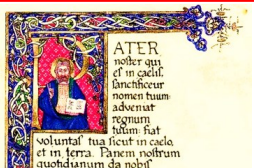 ATER
noster qui
es in caelis.
sanctificetur
nomen tuum:
adveniat
regnum
tuum: fiat
voluntas tua sicut in caelo,
et in terra. Panem nostrum
quotidianum da nobis